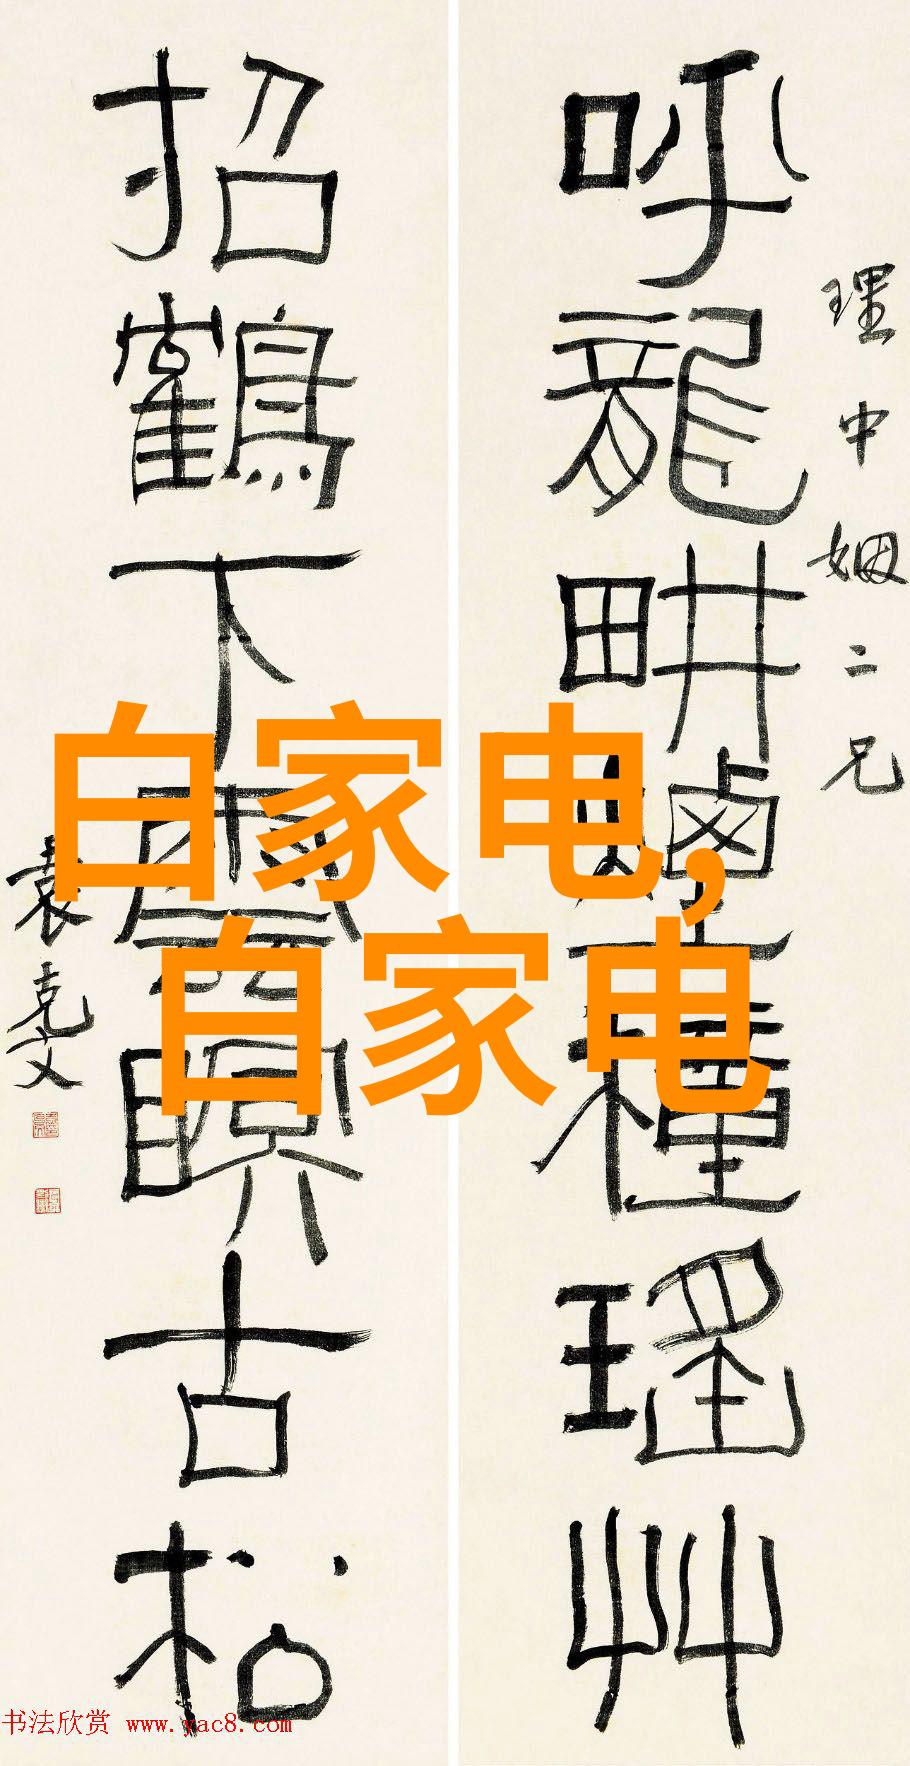 理中姻二兄
呼龍畊煙種瑤艸
招鶴下雲瞑古松
袁克文
自家电,
自家电
书法欣赏 www.yac8.com